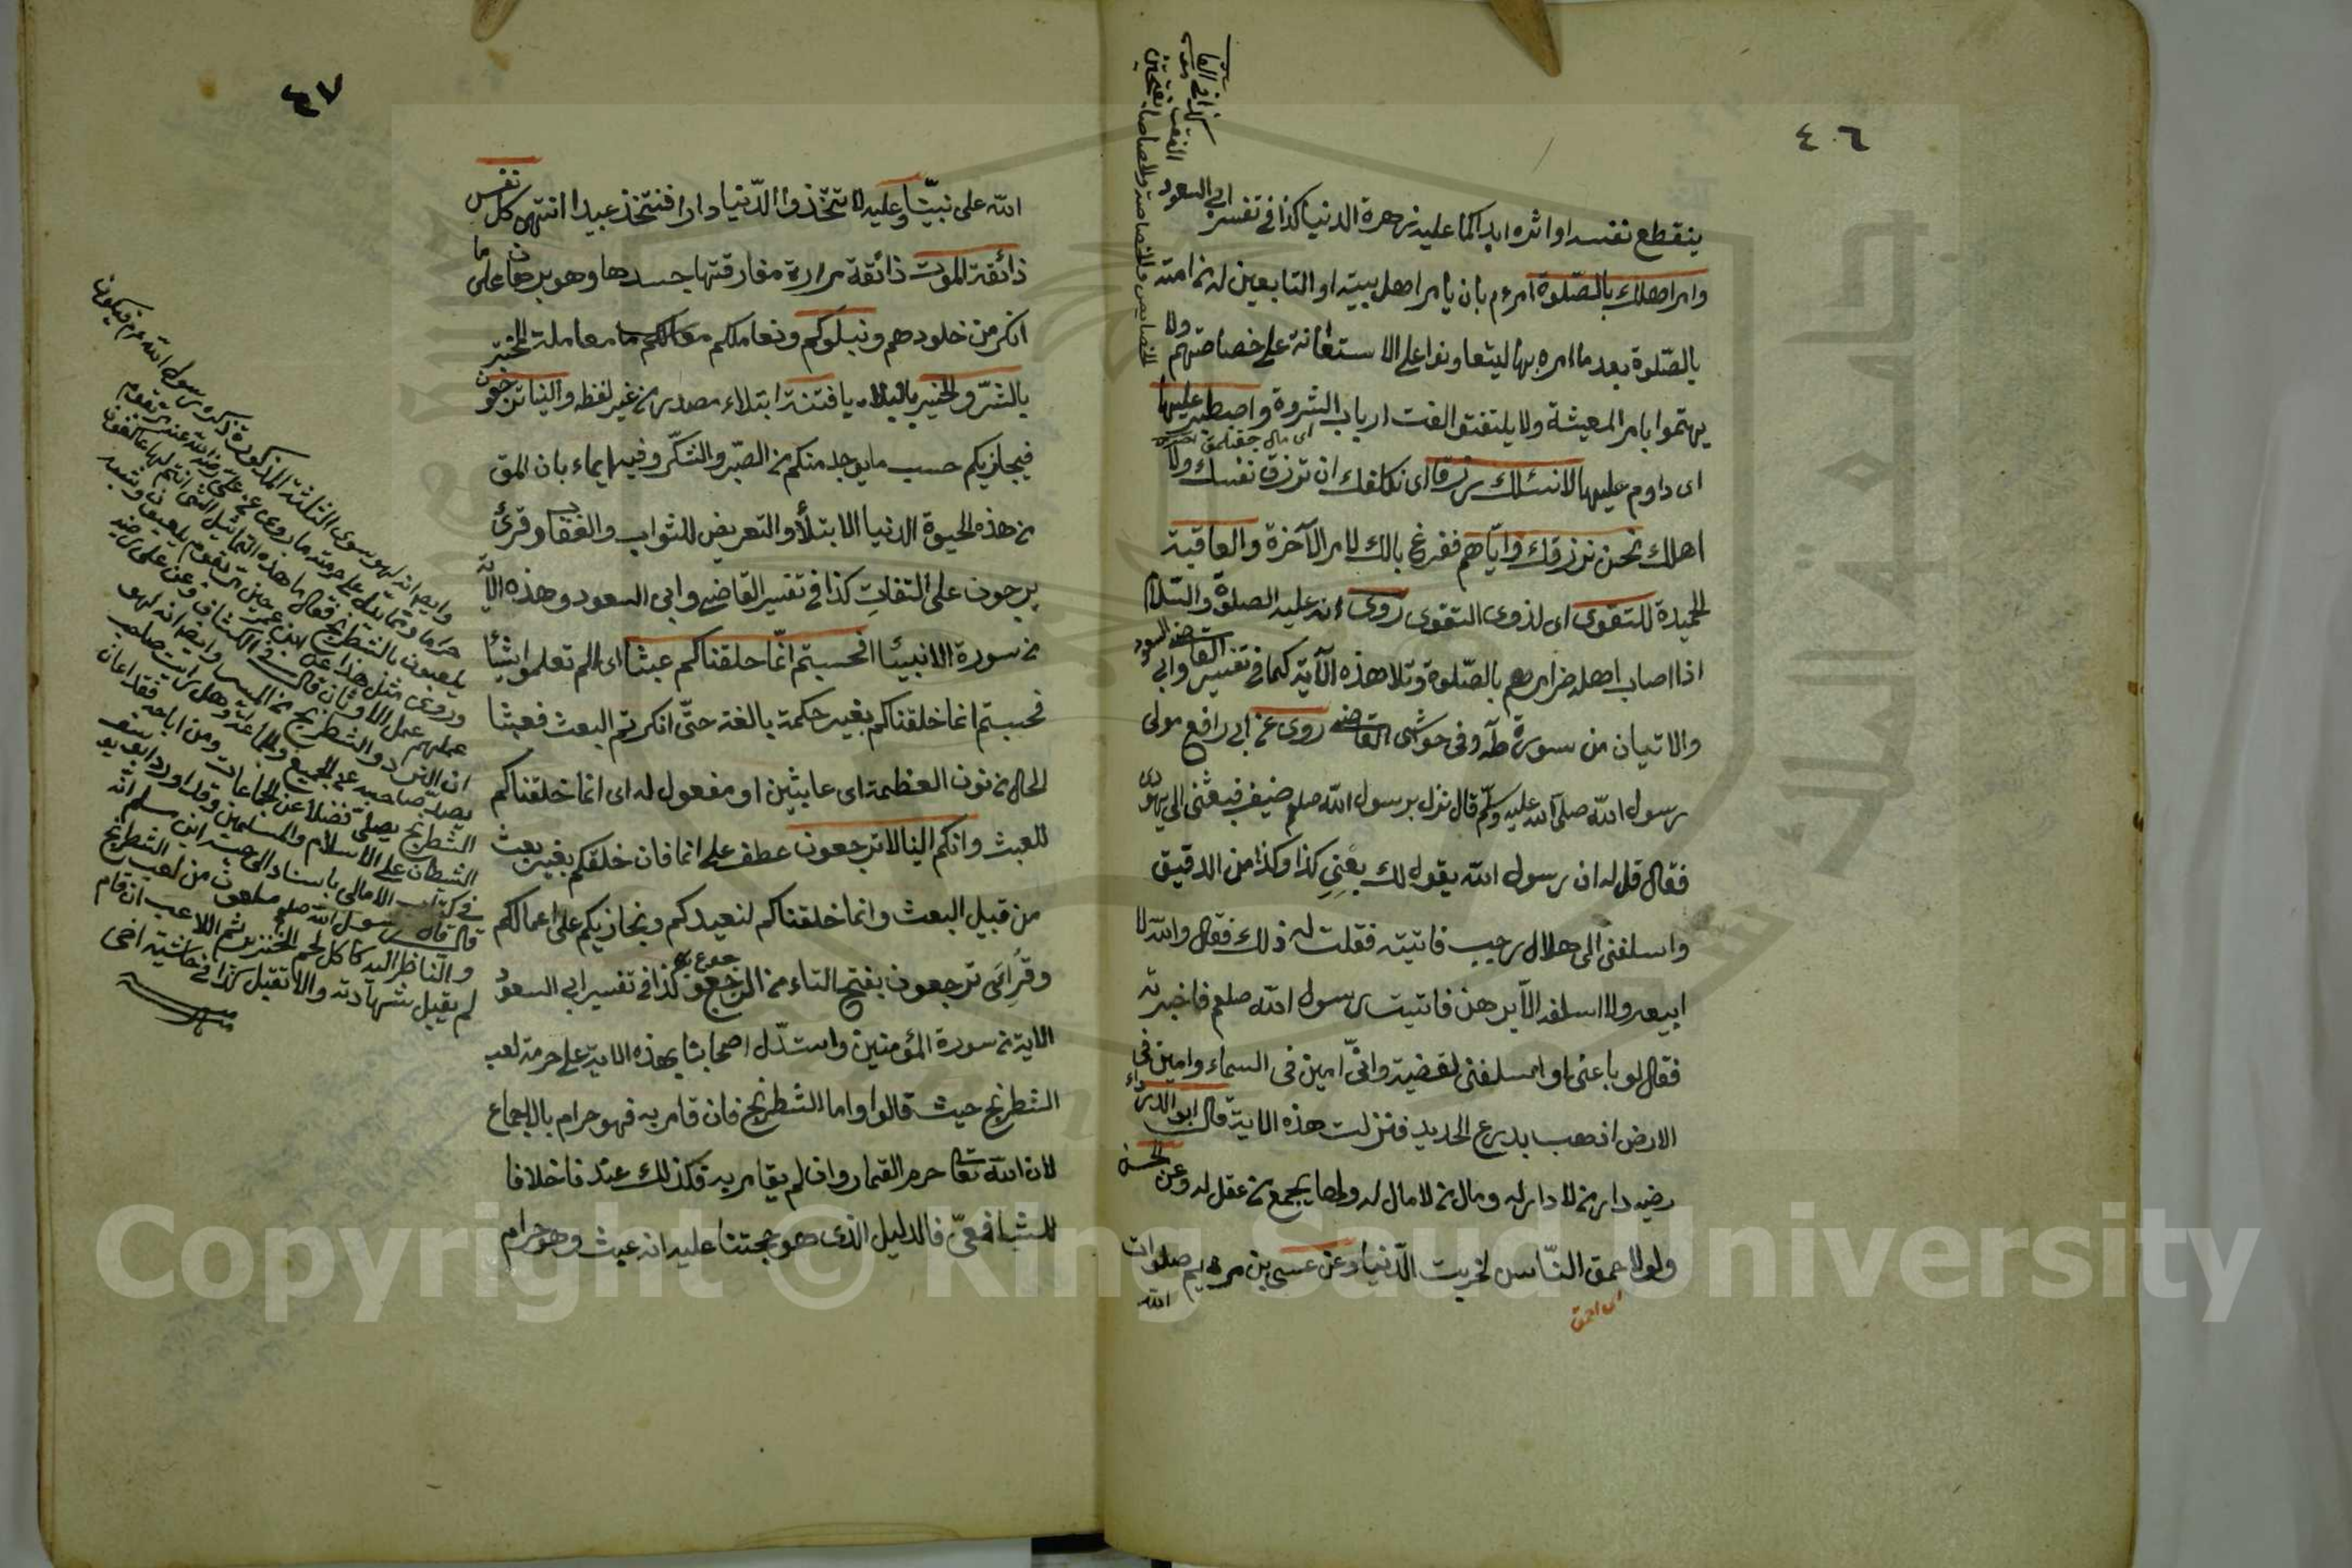 ٤٦
ينقطع نفسه او اثره ابدا كما عليه زهرة الدنيا كذا في تفسير ابي السعود
وامر اهلك بالصلوة امره م بان يامر اهل بيته او التابعين له من امته
بالصلوة بعد ما امره بها ليتعاونوا على الاستعانة على خصاصتهم ولا
يهتموا بامر المعيشة ولا يلتفتوا لفت ارباب الثروة واصطبر عليها
اى داوم عليها لا نسئلك رزقا اى نكلفك ان ترزق نفسك ولا
اهلك نحن نرزقك واياهم ففرغ بالك لامر الآخرة والعاقبة
الحميدة للتقوى اى لذوى التقوى روى انه عليه الصلوة والسلام
اذا اصاب اهله ضر امرهم بالصلوة وتلا هذه الآية كما في تفسير القاضى وابي السعود
والاتيان من سورة طه وفى حواشى القاضى روى عن ابى رافع مولى
رسول الله صلى الله عليه وسلم قال نزل برسول الله صلعم ضيف فبعثنى الى يهودى
فقال قل له ان رسول الله يقول لك بعنى كذا وكذا من الدقيق
واسلفنى الى هلال رجب فاتيته فقلت له ذلك فقال والله لا
ابيعه ولا اسلفه الا برهن فاتيت رسول الله صلعم فاخبرته
فقال لو باعنى او اسلفنى لقضيته وانى امين فى السماء وامين فى
الارض اذهب بدرع الحديد فنزلت هذه الاية قال ابو الدرداء
رضيه دار من لا دار له ومال من لا مال له ولها يجمع من عقل له وعن الحسن
ولولا حمق الناس لخربت الدنيا وعن عيسى بن مريم صلوات
الله
اى احمق
الخصايص والخصاصة والخصاصا بفتحتين
الفقر
كذا فى
٤٧
الله على نبينا وعليه لا تتخذوا الدنيا دارا فتتخذ عبيدا انتهى كل نفس
ذائقة الموت ذائقة مرارة مفارقتها جسدها وهو برهان على ما
انكر من خلودهم ونبلوكم ونعاملكم معاملة المختبر
بالشر والخير بالبلايا فتنة ابتلاء مصدر من غير لفظه والينا ترجعون
فيجازيكم حسب ما يوجد منكم من الصبر والشكر وفيه ايماء بان المق
من هذه الحيوة الدنيا الابتلاء والتعريض للثواب والعقاب وقرئ
يرجعون على التفات كذا في تفسير القاضى وابى السعود وهذه الآية
من سورة الانبيا افحسبتم انما خلقناكم عبثا اى الم تعلموا شيئا
فحسبتم انما خلقناكم بغير حكمة بالغة حتى انكرتم البعث فعبثا
الحال من نون العظمة اى عابثين او مفعول له اى انما خلقناكم
للعبث وانكم الينا لا ترجعون عطف على انما فان خلقكم بغير بعث
من قبيل البعث وانما خلقناكم لنعيدكم ونجازيكم على اعمالكم
وقرئ ترجعون بفتح التاء من الرجوع كذا في تفسير ابى السعود
الاية من سورة المؤمنين واستدل اصحابنا بهذه الاية على حرمة لعب
الشطرنج حيث قالوا واما الشطرنج فان قامر به فهو حرام بالاجماع
لان الله تعالى حرم القمار وان لم يقامر به فكذلك عندنا خلافا
للشافعى فالدليل الذى هو حجتنا عليه انه عبث وهو حرام
وايضا انه لهو سوى الثلثة المذكورة ذكره رسول الله عم فيكون
حراما ومما يدل على حرمته ما روى عن على رضى الله عنه مر بقوم
يلعبون بالشطرنج فقال ما هذه التماثيل التى انتم لها عاكفون
وروى مثل هذا عن ابن عمر حين مر بقوم يلعبون وشبه
عملهم عمل الاوثان قال فى الكشاف وعن على رضيه
ان النرد والشطرنج من الميسر وايضا انه لهو
يصد صاحبه عن الجمع والجماعة وهل رايت صاحب
الشطرنج يصلى فضلا عن الجماعات ومن اباحه فقد اعان
الشيطان على الاسلام والمسلمين وقد اورد ابو يوسف
فى كتاب الامالى باسناد الى حبة ابن مسلم انه
قال قال رسول الله صلعم ملعون من لعب الشطرنج
والناظر اليه كاكل لحم الخنزير ثم اللاعب ان قام
لم يقبل شهادته والا تقبل كذا فى حاشية اخى
Copyright © King Saud University